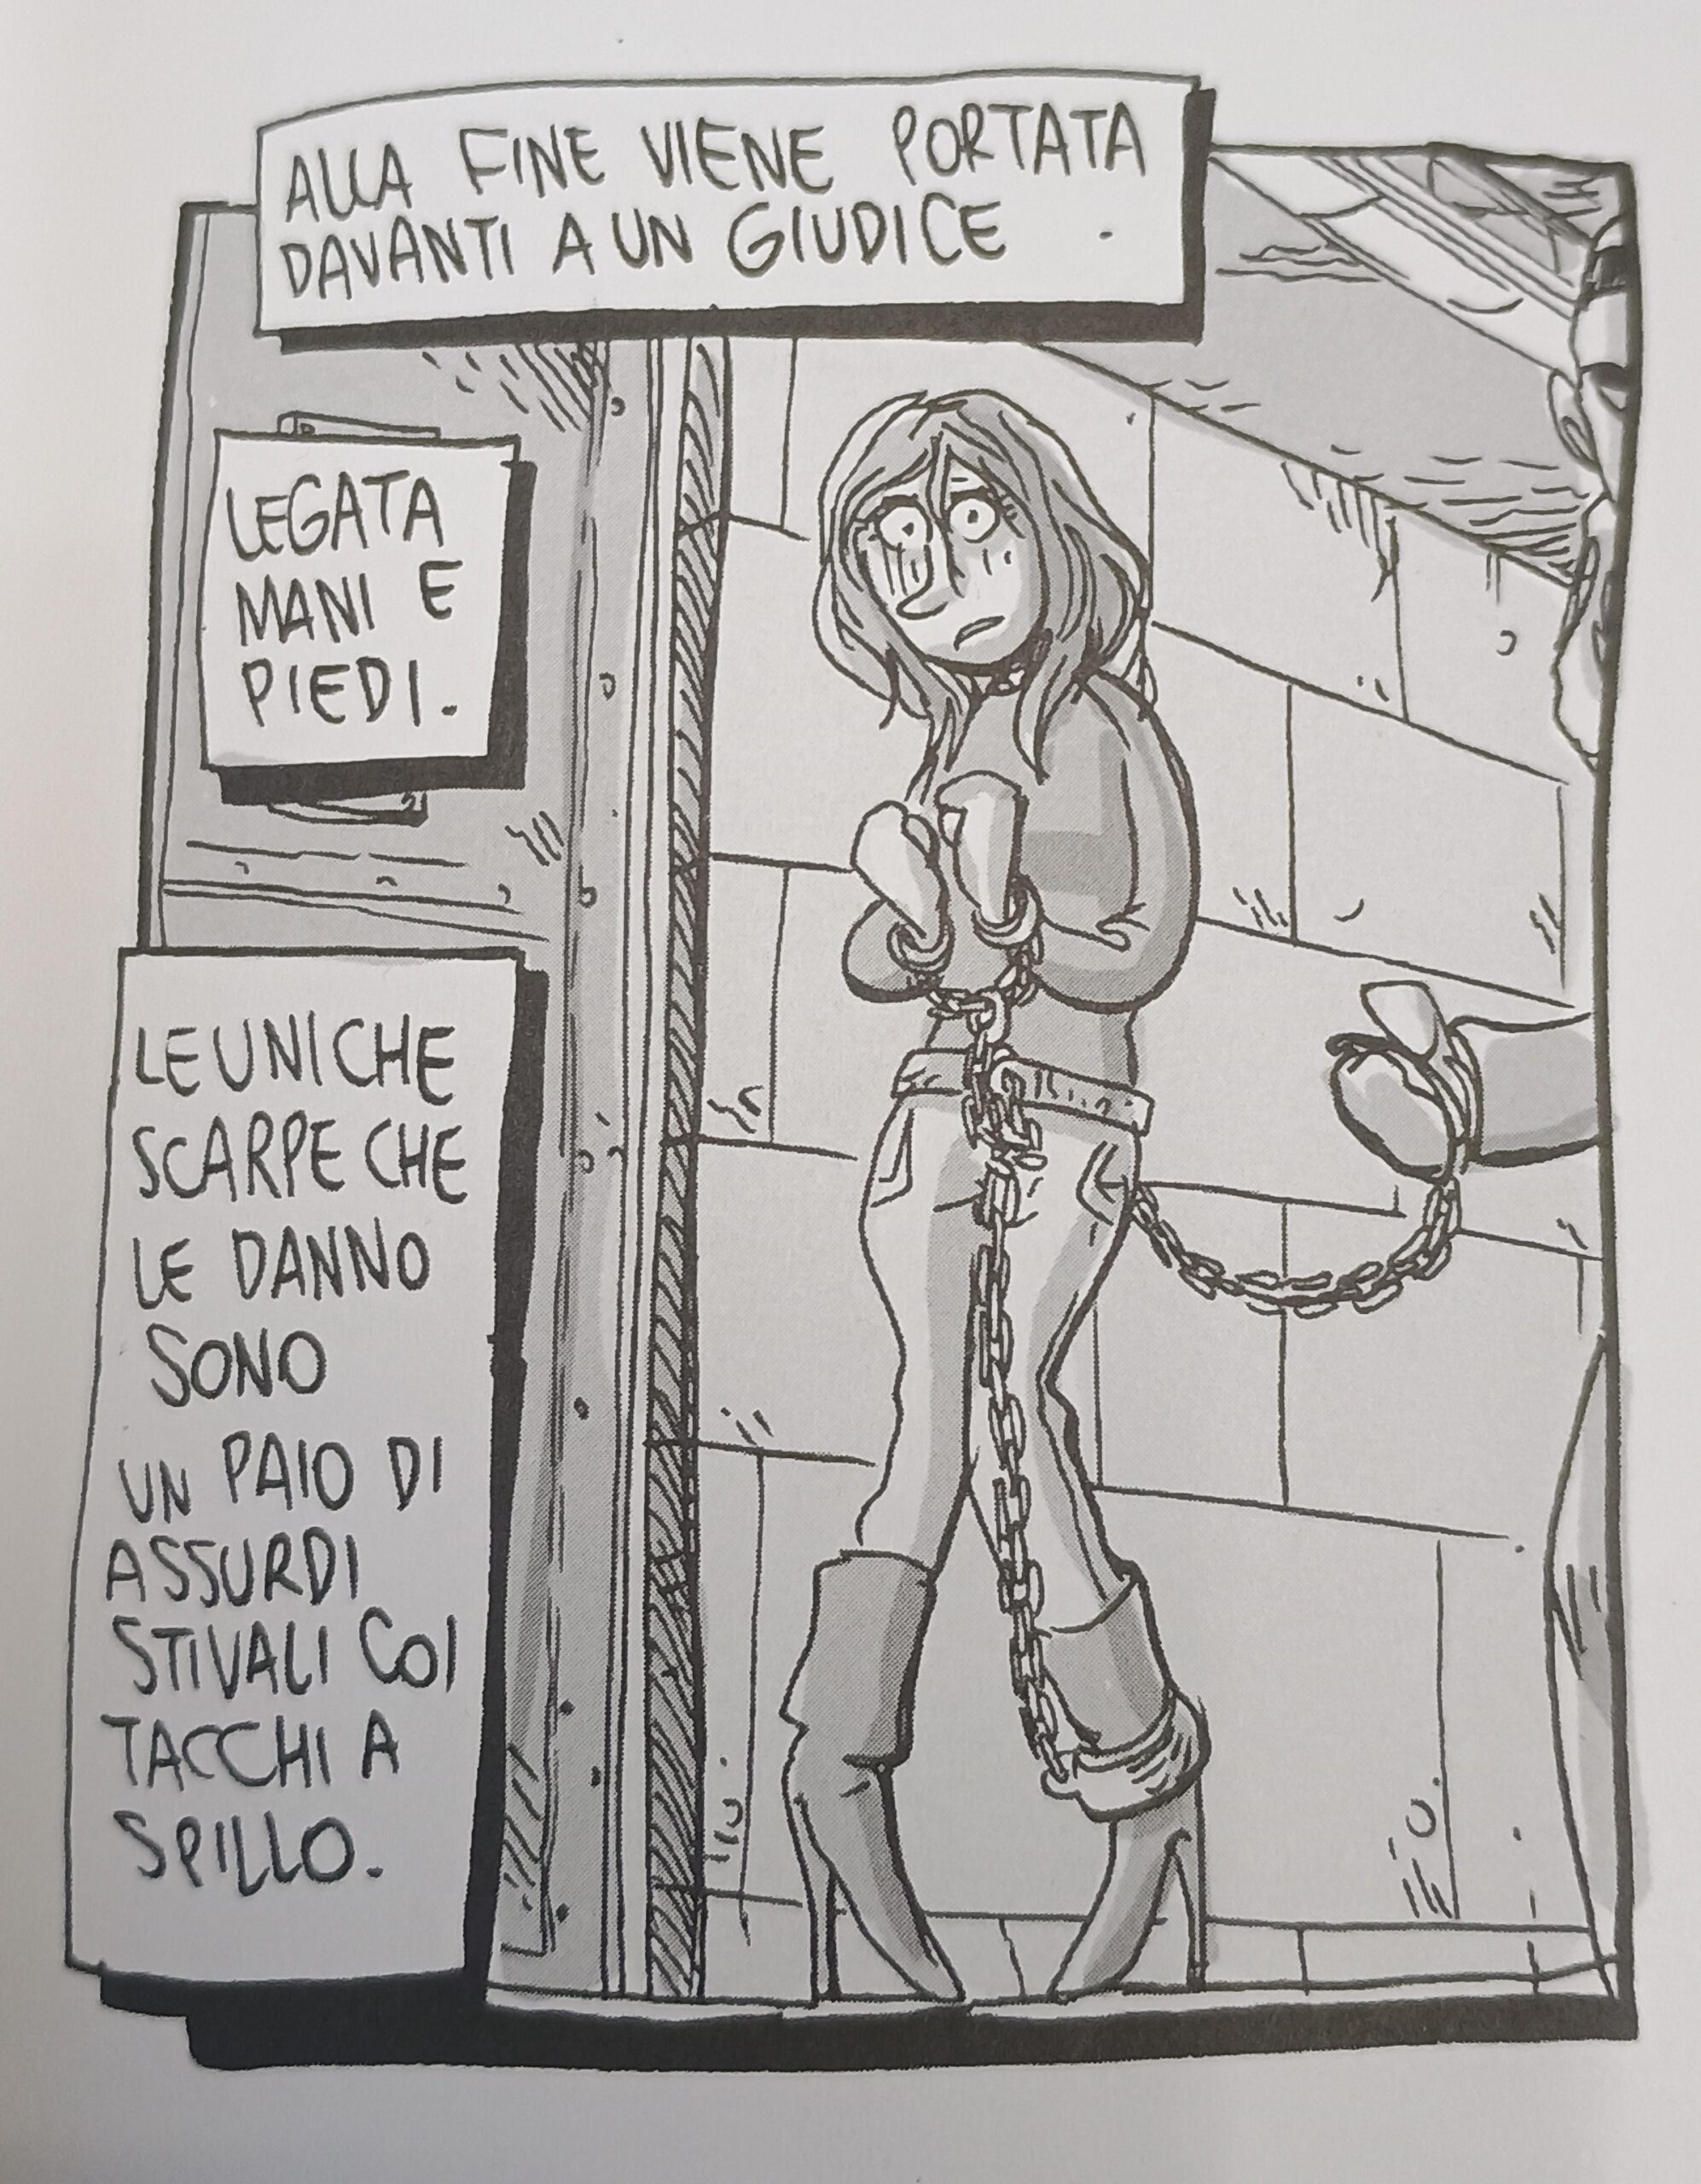 ALLA FINE VIENE PORTATA
DAVANTI A UN GIUDICE .
LEGATA
MANI E
PIEDI.
LE UNICHE
SCARPE CHE
LE DANNO
SONO
UN PAIO DI
ASSURDI
STIVALI COI
TACCHI A
SPILLO.